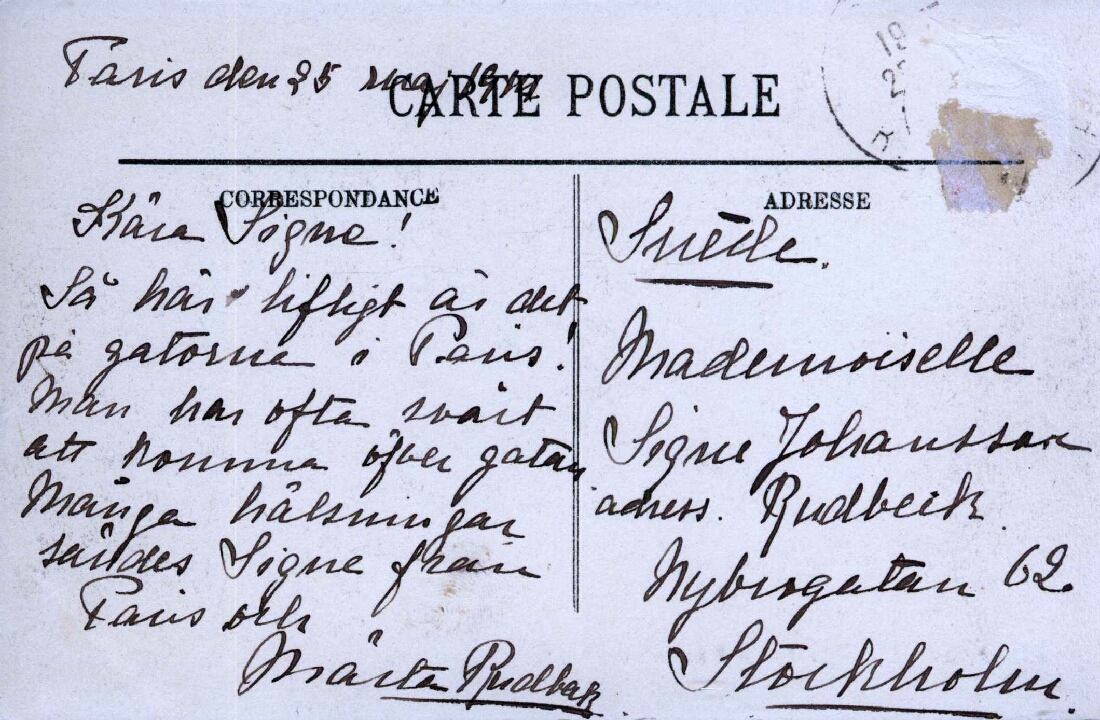 Paris den 25 maj
CARTE POSTALE
CORRESPONDANCE
Kära Signe!
Så här lifligt är det
på gatorna i Paris!
Man har ofta svårt
att komma öfver gatan
Många hälsningar
sändes Signe från
Paris och
Märta Rudbeck
ADRESSE
Suède.
Mademoiselle
Signe Johansson
adress. Rudbeck
Nybrogatan 62.
Stockholm.